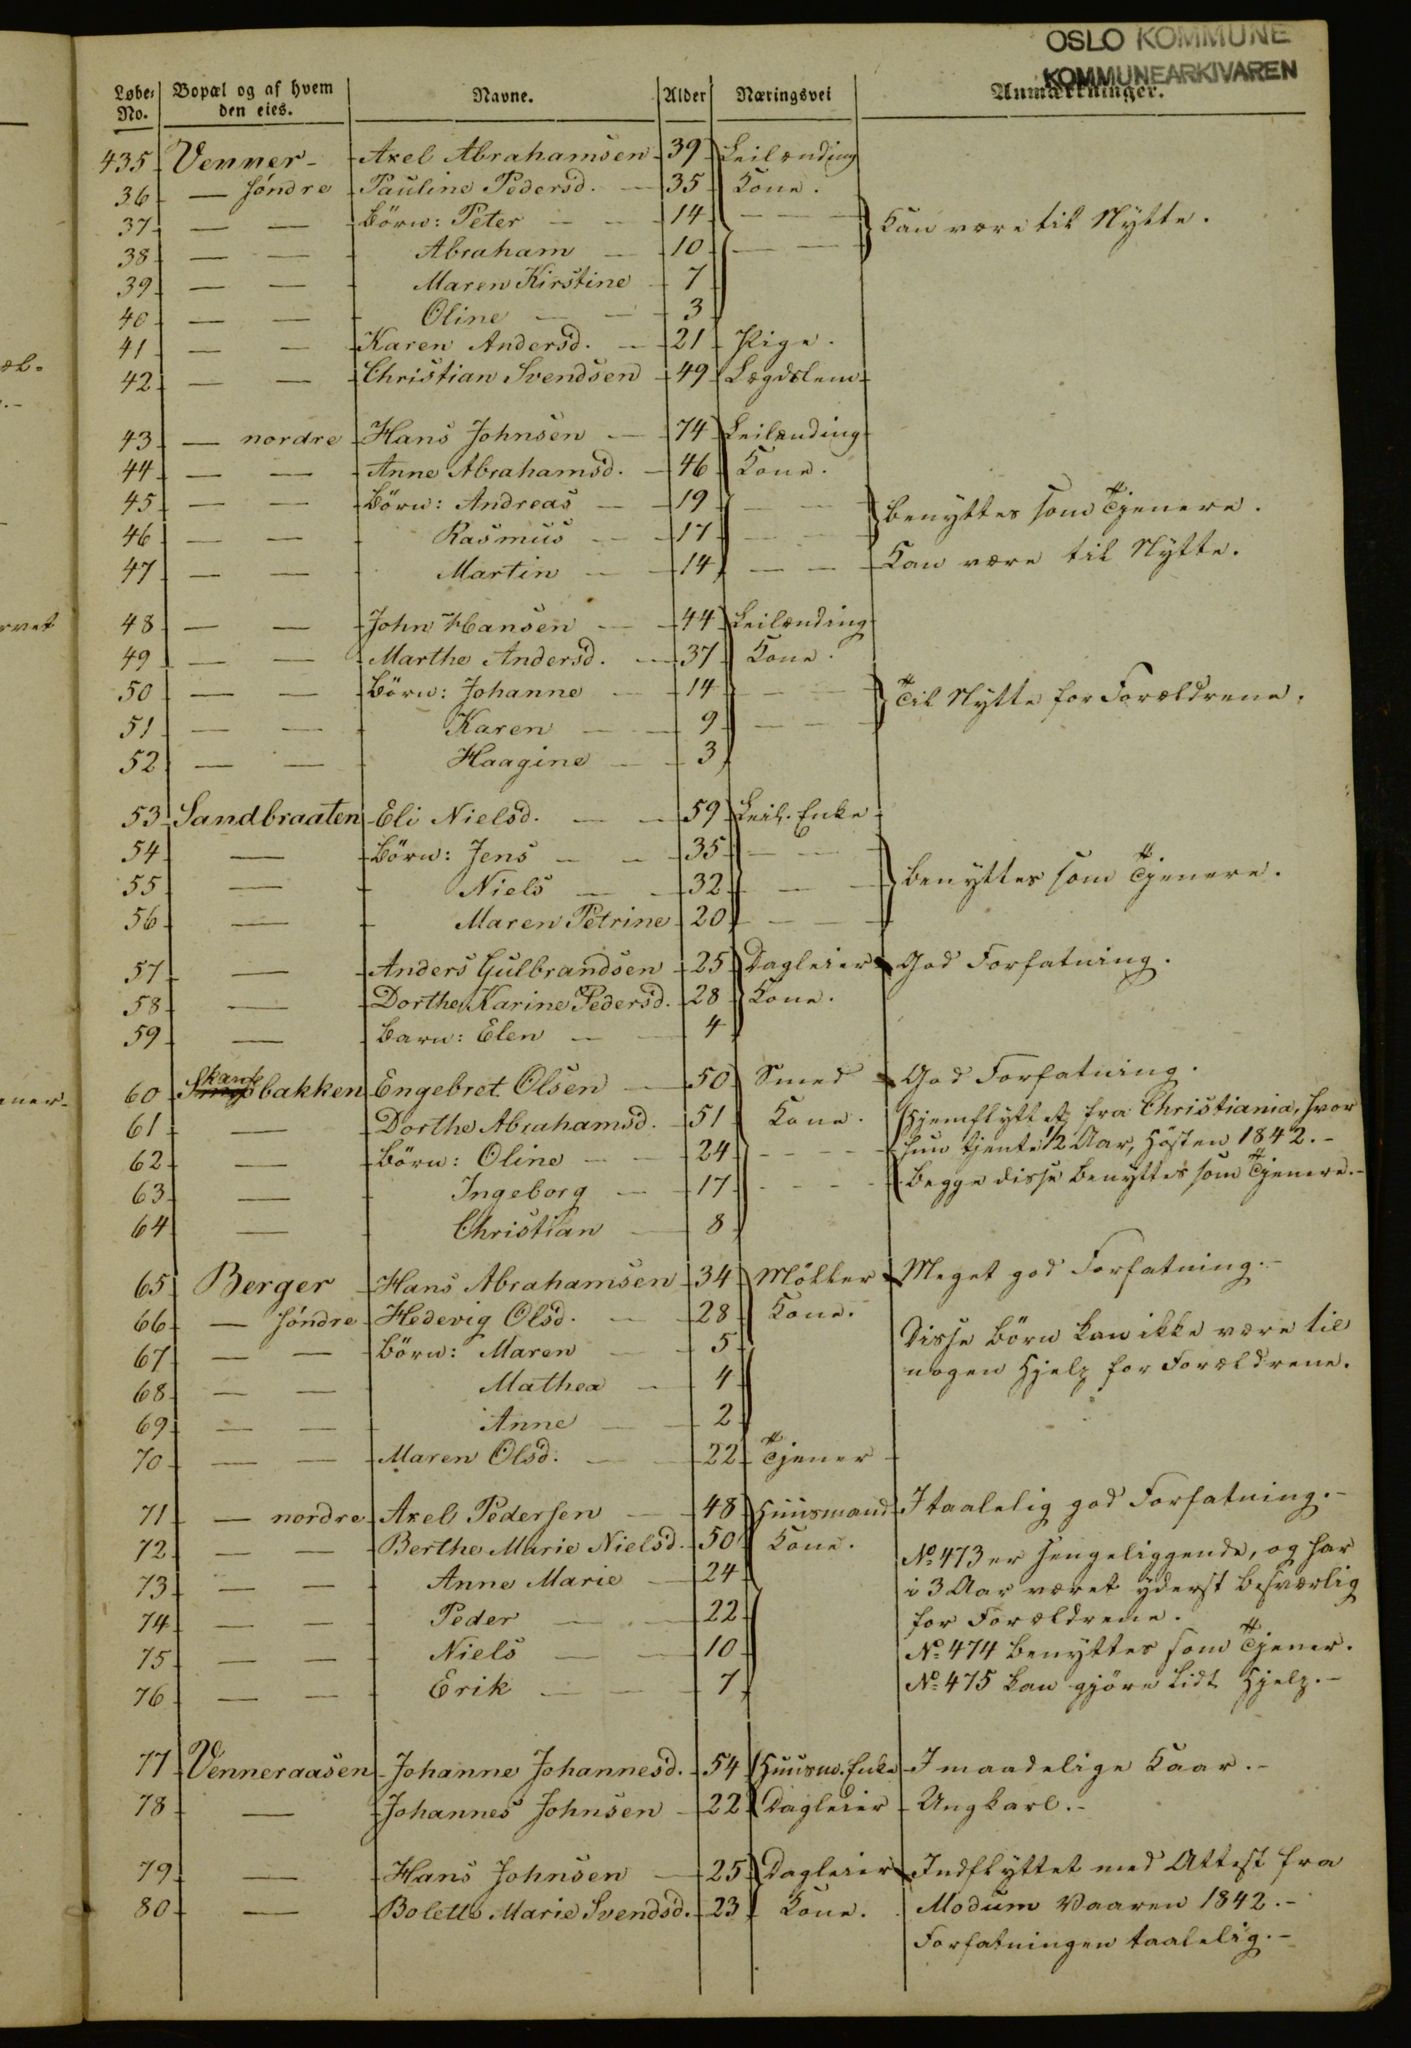 OSLO KOMMUNE
KOMMUNEARKIVAREN
Løbe- No. Bopæl og af hvem den eies. Navne. Alder Næringsvei Anmærkninger.
435 Venner - Axel Abrahamsen 39 Leilænding
36 — söndre Pauline Pedersd. — 35 Kone.
37 — — Börn: Peter — — 14 — — Kan være til Nytte.
38 — — Abraham — 10 — —
39 — — Maren Kirstine 7
40 — — Oline — — 3
41 — — Karen Andersd. — 21 Pige.
42 — — Christian Svendsen 49 Lægdslem
43 — nordre Hans Johnsen — 74 Leilænding
44 — — Anne Abrahamsd. — 46 Kone.
45 — — Börn: Andreas — 19 — — benyttes som Tjenere.
46 — — Rasmus — 17 — —
47 — — Martin — 14 — — Kan være til Nytte.
48 — — John Hansen — 44 Leilænding
49 — — Marthe Andersd. — 37 Kone.
50 — — Börn: Johanne — 14 — — Til Nytte for Forældrene.
51 — — Karen — 9 — —
52 — — Haagine — 3
53 Sandbraaten Eli Nielsd. — — 59 Leil. Enke
54 — Börn: Jens — — 35 — — benyttes som Tjenere.
55 — Niels — — 32 — —
56 — Maren Petrine 20 — —
57 — Anders Gulbrandsen 25 Dagleier God Forfatning.
58 — Dorthe Karine Pedersd. 28 Kone.
59 — Barn: Elen — — 4
60 Skandsbakken Engebret Olsen — 50 Smed God Forfatning.
61 — Dorthe Abrahamsd. — 51 Kone. Hjemflyttet fra Christiania, hvor
62 — Börn: Oline — — 24 — — hun tjente 1/2 Aar, Hösten 1842. -
63 — Ingeborg — 17 — — Begge disse benyttes som Tjenere. -
64 — Christian — 8
65 Berger Hans Abrahamsen 34 Möller Meget god Forfatning. -
66 — söndre Hedevig Olsd. — 28 Kone.
67 — — Börn: Maren — 5 Disse Börn kan ikke være til
68 — — Mathea — 4 nogen Hjelp for Forældrene.
69 — — Anne — 2
70 — — Maren Olsd. — 22 Tjener
71 — nordre Axel Pedersen — 48 Huusmand I taalelig god Forfatning. -
72 — — Berthe Marie Nielsd. 50 Kone.
73 — — Anne Marie — 24 No 473 er sengeliggende, og har
i 3 Aar været yderst besværlig
74 — — Peder — — 22 for Forældrene.
75 — — Niels — — 10 No 474 benyttes som Tjener.
76 — — Erik — — 7 No 475 kan gjöre lidt Hjelp. -
77 Venneraasen Johanne Johannesd. 54 Huusm. Enke I maadelige Kaar. -
78 — Johannes Johnsen — 22 Dagleier Ungkarl. -
79 — Hans Johnsen — 25 Dagleier Indflyttet med Attest fra
80 — Bolette Marie Svendsd. 23 Kone. Modum Vaaren 1842. -
Forfatningen taalelig. -